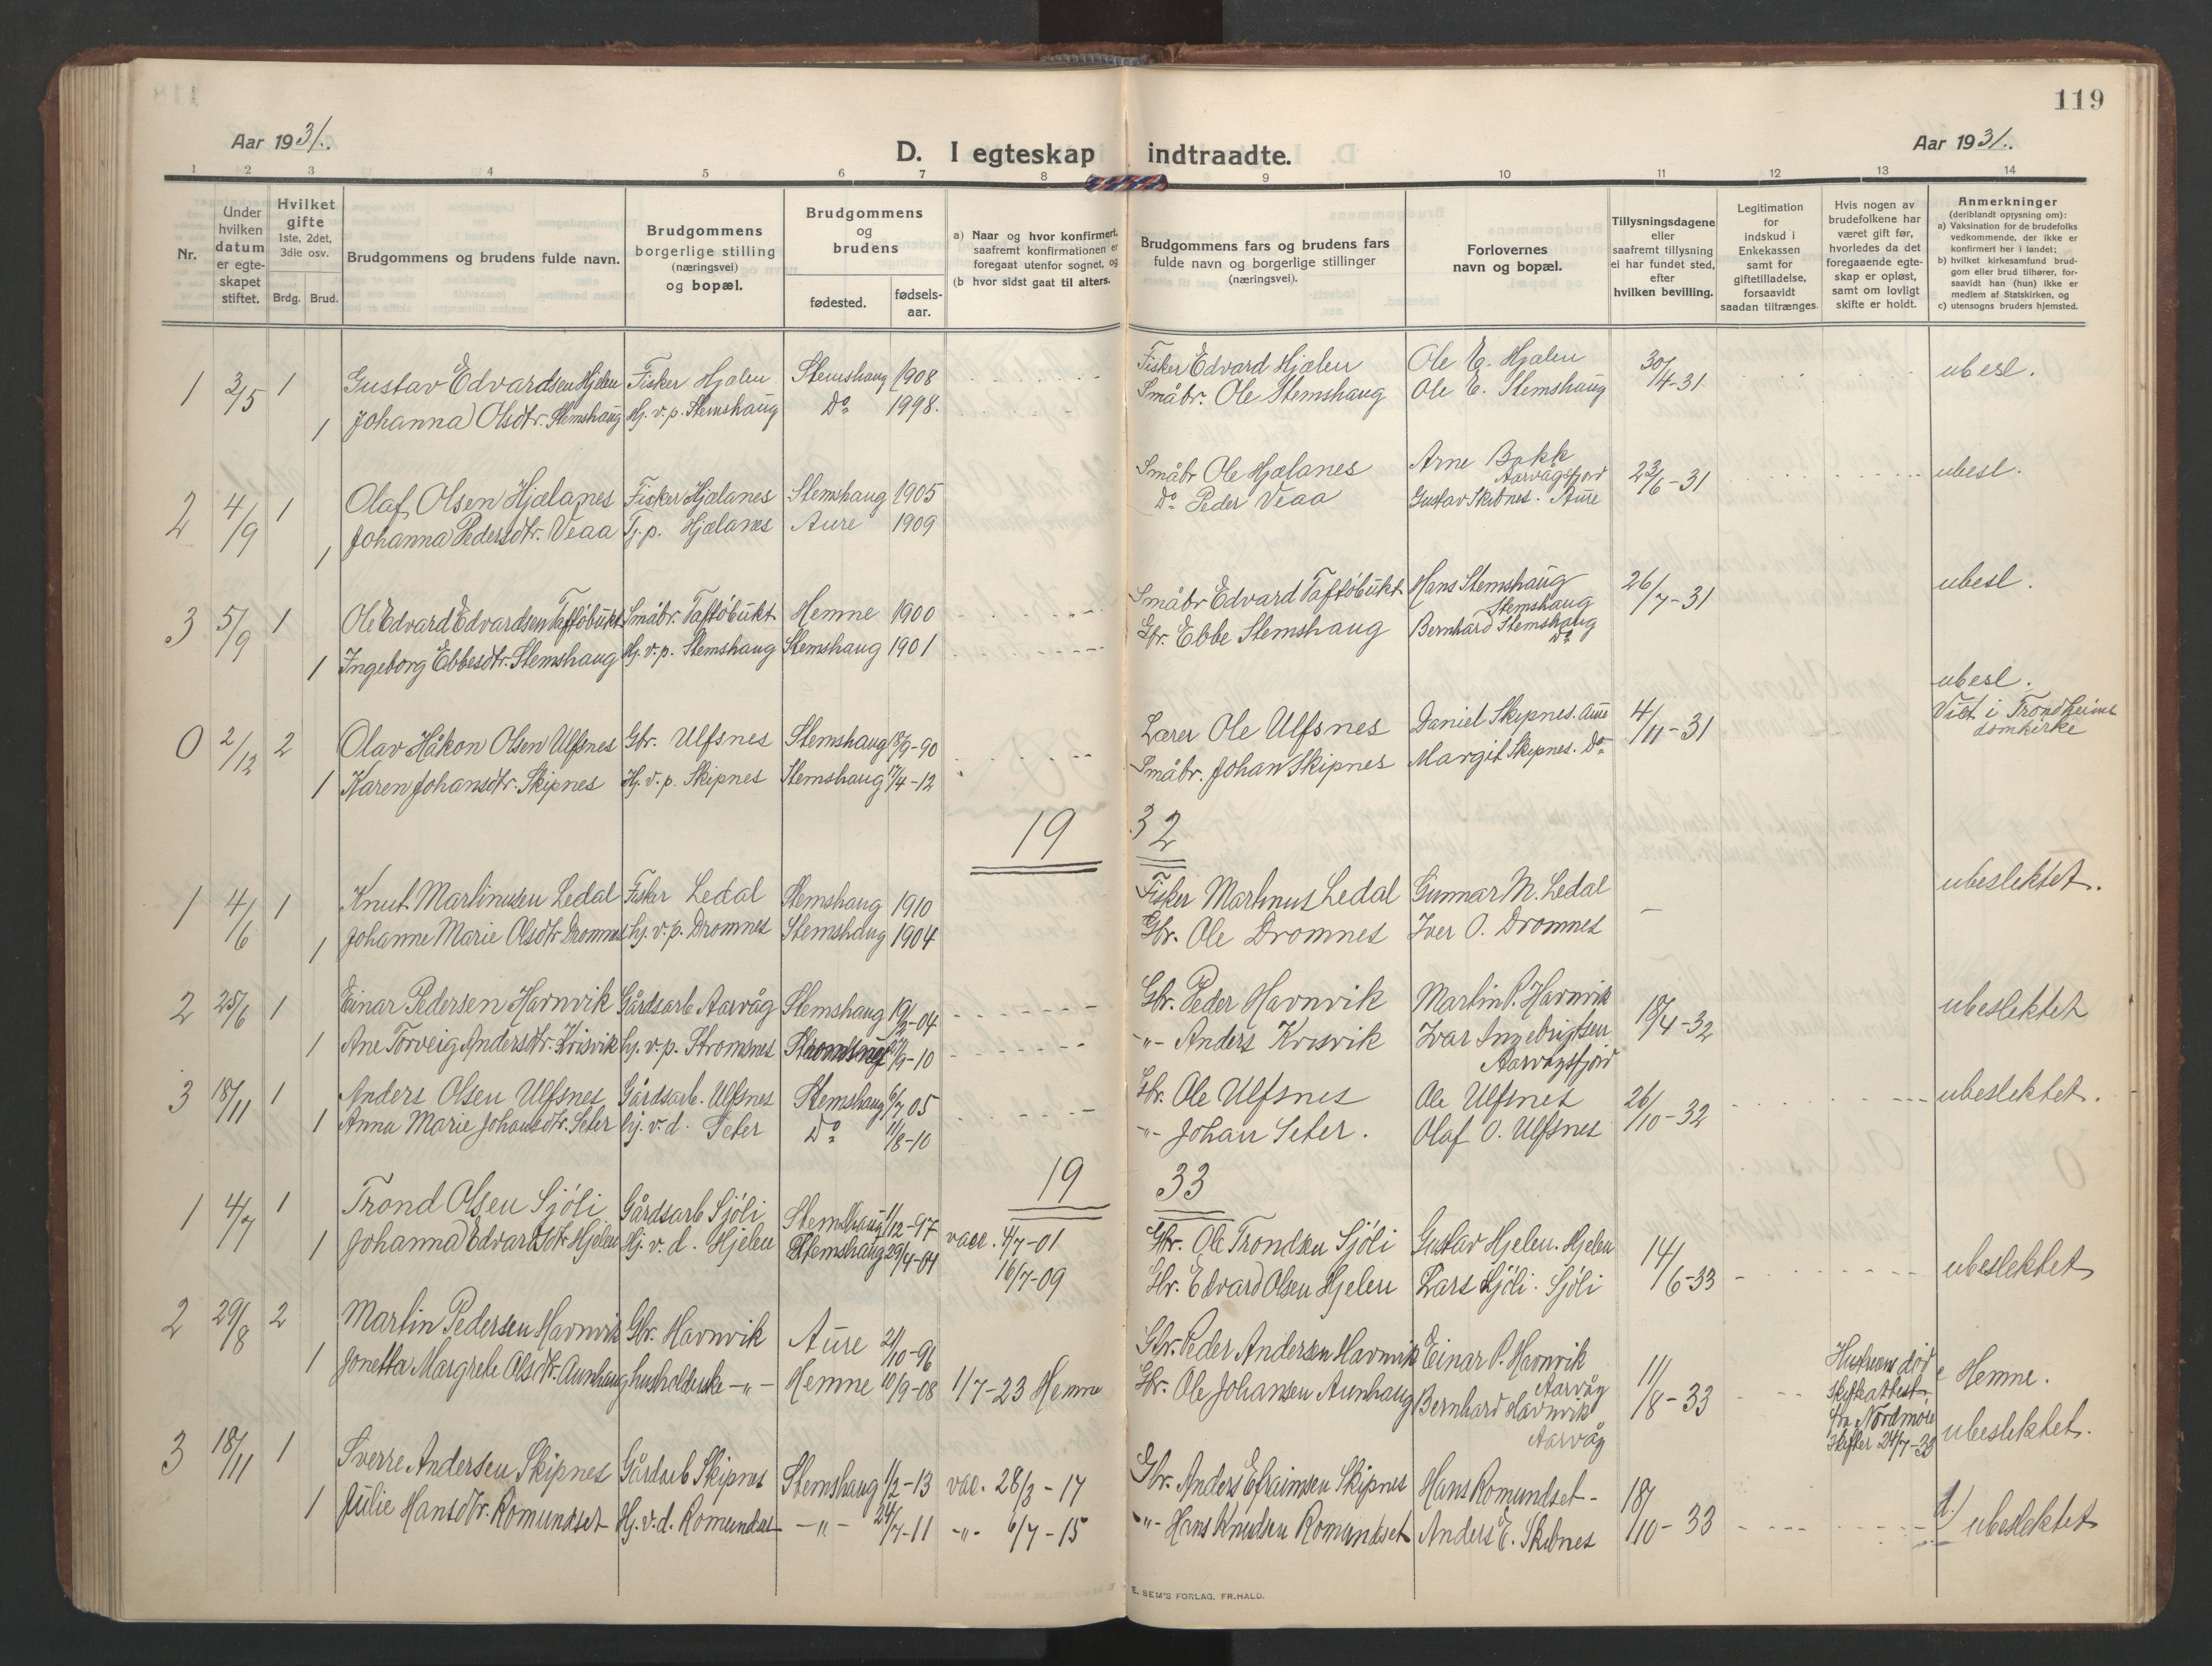 119
Aar 1931.
D. I egteskap indtraadte.
Aar 1931.
1 2 3 4 5 6 7 8 9 10 11 12 13 14
Nr.
Under hvilken datum er egteskapet stiftet.
Hvilket gifte 1ste, 2det, 3die osv.
Brdg. Brud.
Brudgommens og brudens fulde navn.
Brudgommens borgerlige stilling (næringsvei) og bopæl.
Brudgommens og brudens
fødested. fødsels-aar.
a) Naar og hvor konfirmert, saafremt konfirmationen er foregaat utenfor sognet, og
(b hvor sidst gaat til alters.
Brudgommens fars og brudens fars fulde navn og borgerlige stillinger (næringsvei).
Forlovernes navn og bopæl.
Tillysningsdagene eller saafremt tillysning ei har fundet sted, efter hvilken bevilling.
Legitimation for indskud i Enkekassen samt for giftetilladelse, forsaavidt saadan tiltrænges.
Hvis nogen av brudefolkene har været gift før, hvorledes da det foregaaende egteskap er opløst, samt om lovligt skifte er holdt.
Anmerkninger (deriblandt opjysning om):
a) Vaksination for de brudefolks vedkommende, der ikke er konfirmert her i landet;
b) hvilket kirkesamfund brudgom eller brud tilhører, forsaavidt han (hun) ikke er medlem af Statskirken, og
c) utensogns bruders hjemsted.
1 3/5 1 Gustav Edvardsen Hjelen Fisker Hjælen Stemshaug 1908 Fisker Edvard Hjælen Ole E. Hjælen 30/4-31 ubesl.
1 Johanna Olsdtr. Stemshaug Hj. v. p. Stemshaug Do 1998. Småbr. Ole Stemshaug Ole E. Stemshaug
2 4/9 1 Olaf Olsen Hjælanes Fisker Hjælanes Stemshaug 1905 Småbr Ole Hjælanes Arne Bakk Aarvågsfjord 23/6-31 ubesl.
1 Johanna Pedersdtr. Veaa Tj. p. Hjælanes Aure 1909 Do Peder Veaa Gustav Skibnes. Aure
3 5/9 1 Ole Edvard Edvardsen Taftöbukt Småbr. Taftöbukt Hemne 1900 Småbr Edvard Taftöbukt Hans Stemshaug Stemshaug 26/7-31 ubesl.
1 Ingeborg Ebbesdtr. Stemshaug Hj. v. p. Stemshaug Stemshaug 1901 Gbr. Ebbe Stemshaug Bernhard Stemshaug Do
0 2/12 2 Olav Håkon Olsen Ulfsnes Gbr. Ulfsnes Stemshaug 13/9-90 Lærer Ole Ulfsnes Daniel Skipnes. Aure 4/11-31 ubesl. Viet i Trondheims domkirke
1 Karen Johansdtr. Skipnes Hj. v. p. Skipnes Stemshaug 17/4-12 Småbr. Johan Skipnes Margit Skipnes. Do
19 32
1 4/6 1 Knut Martinusen Ledal Fisker Ledal Stemshaug 1910 Fisker Martinus Ledal Gunnar M. Ledal - ubeslektet.
1 Johanne Marie Olsdtr Dromnes hj. v. p. Dromnes Stemshaug 1904 Gbr. Ole Dromnes Iver O. Dromnes
2 25/6 1 Einar Pedersen Havnvik Gårdsarb Aarvåg Stemshaug 19/2-04 Gbr. Peder Havnvik Martin P. Havnvik 18/4-32 ubeslektet
1 Ane Torveig Andersdtr. Krisvik hj. v. p. Stromsnes 9-10 -"- Anders Krisvik Ivar Ingebrigtsen Aarvågsfjord
3 18/11 1 Anders Olsen Ulfsnes Gårdsarb. Ulfsnes Stemshaug 6/7 05 Gbr. Ole Ulfsnes Ole Ulfsnes 26/10-32 ubeslektet.
1 Anna Marie Johansdtr. Seter hj. v. d. Seter Do 1/8-10 -"- Johan Seter. Olaf O. Ulfsnes
19 33
1 4/7 1 Trond Olsen Sjöli Gårdsarb Sjöli Stemshaug 1/12-97 vacc. 4/7-01 Gbr. Ole Trondsen Sjöli Gustav Hjelen. Hjelen 14/6-33 ubeslektet
1 Johanna Edvardsdtr Hjelen Hj. v. d. Hjelen Stemshaug 29/4-04 16/7-09 Gbr. Edvard Olsen Hjelen Lars Sjöli. Sjöli
2 29/8 2 Martin Pedersen Havnvik Gbr. Havnvik Aure 21/10-96 Gbr. Peder Andersen Havnvik Einar P. Havnvik Aarvåg 11/8-33 Hustruens död skifteattest fra Nordmöre skifter 24/7-33 c Hemne.
1 Jonetta Margrete Olsdtr. Aunhaug husholderske -"- Hemne 10/9-08 1/7-23 Hemne Gbr. Ole Johansen Aunhaug Bernhard Havnvik Aarvåg ubeslektet.
3 18/11 1 Sverre Andersen Skipnes Gårdarb Skipnes Stemshaug 1/2-13 vac. 28/3-17 Gbr. Anders Efraimsen Skipnes Hans Romundset- 18/10-33
1 Julie Hansdtr. Romundset Hj. v. d. Romundset -"- 24/7-11 -"- 6/7-15 -"- Hans Knudsen Romundset Anders E. Skibnes ubeslektet
E. SEM'S FORLAG, FR.HALD.